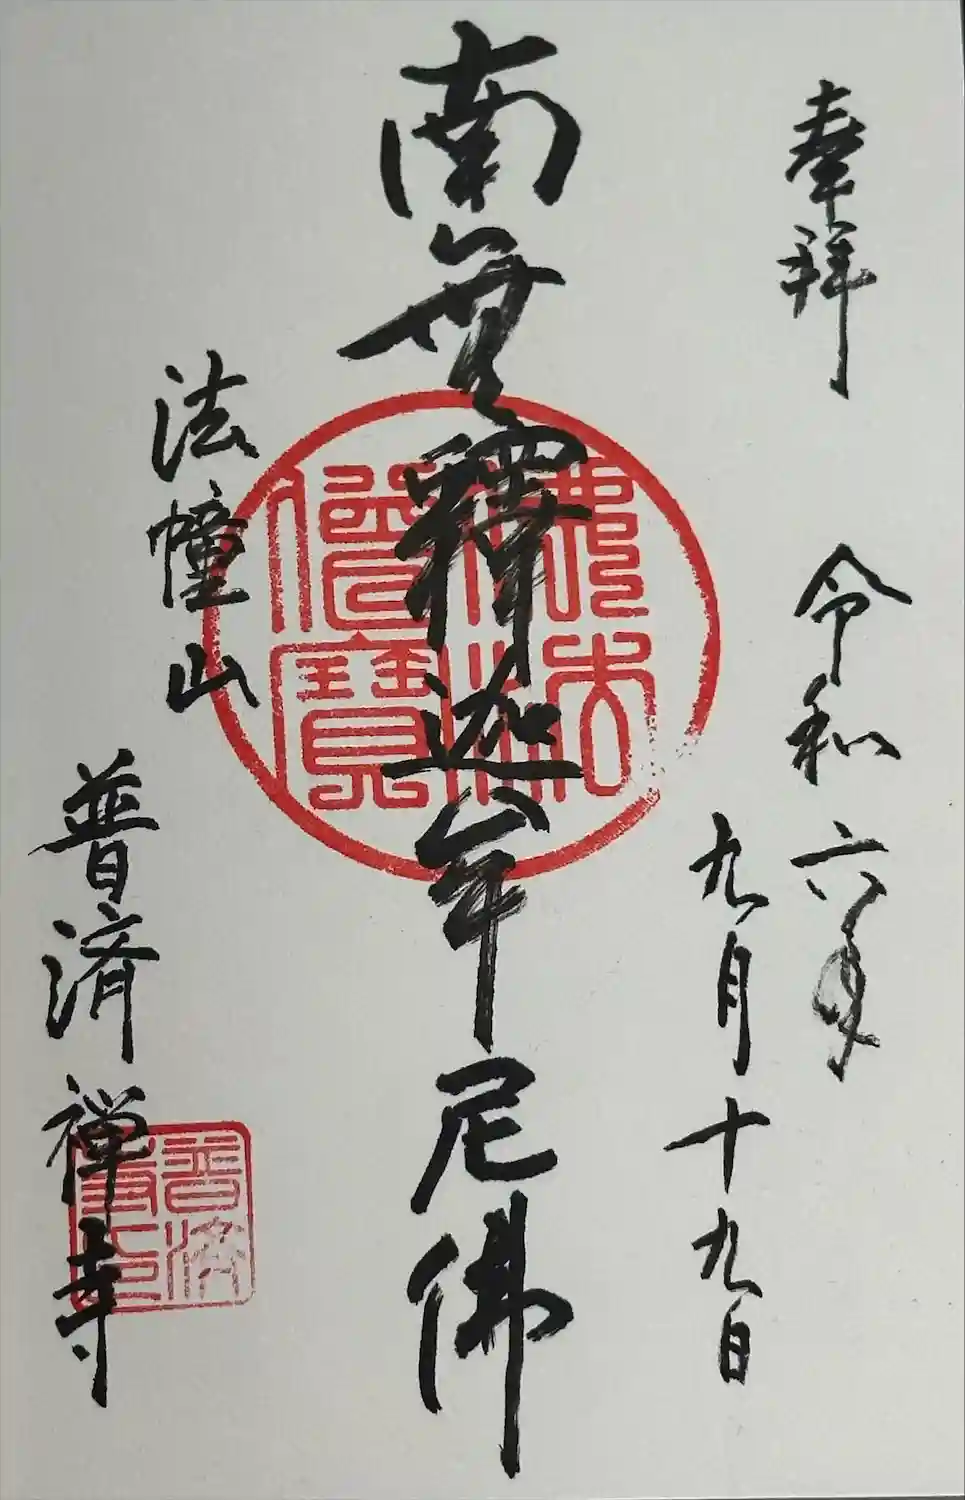 奉拜
令和六年
九月十九日
南無釋迦牟尼佛
佛法
僧寶
法幢山
普済禅寺
普済
寺印